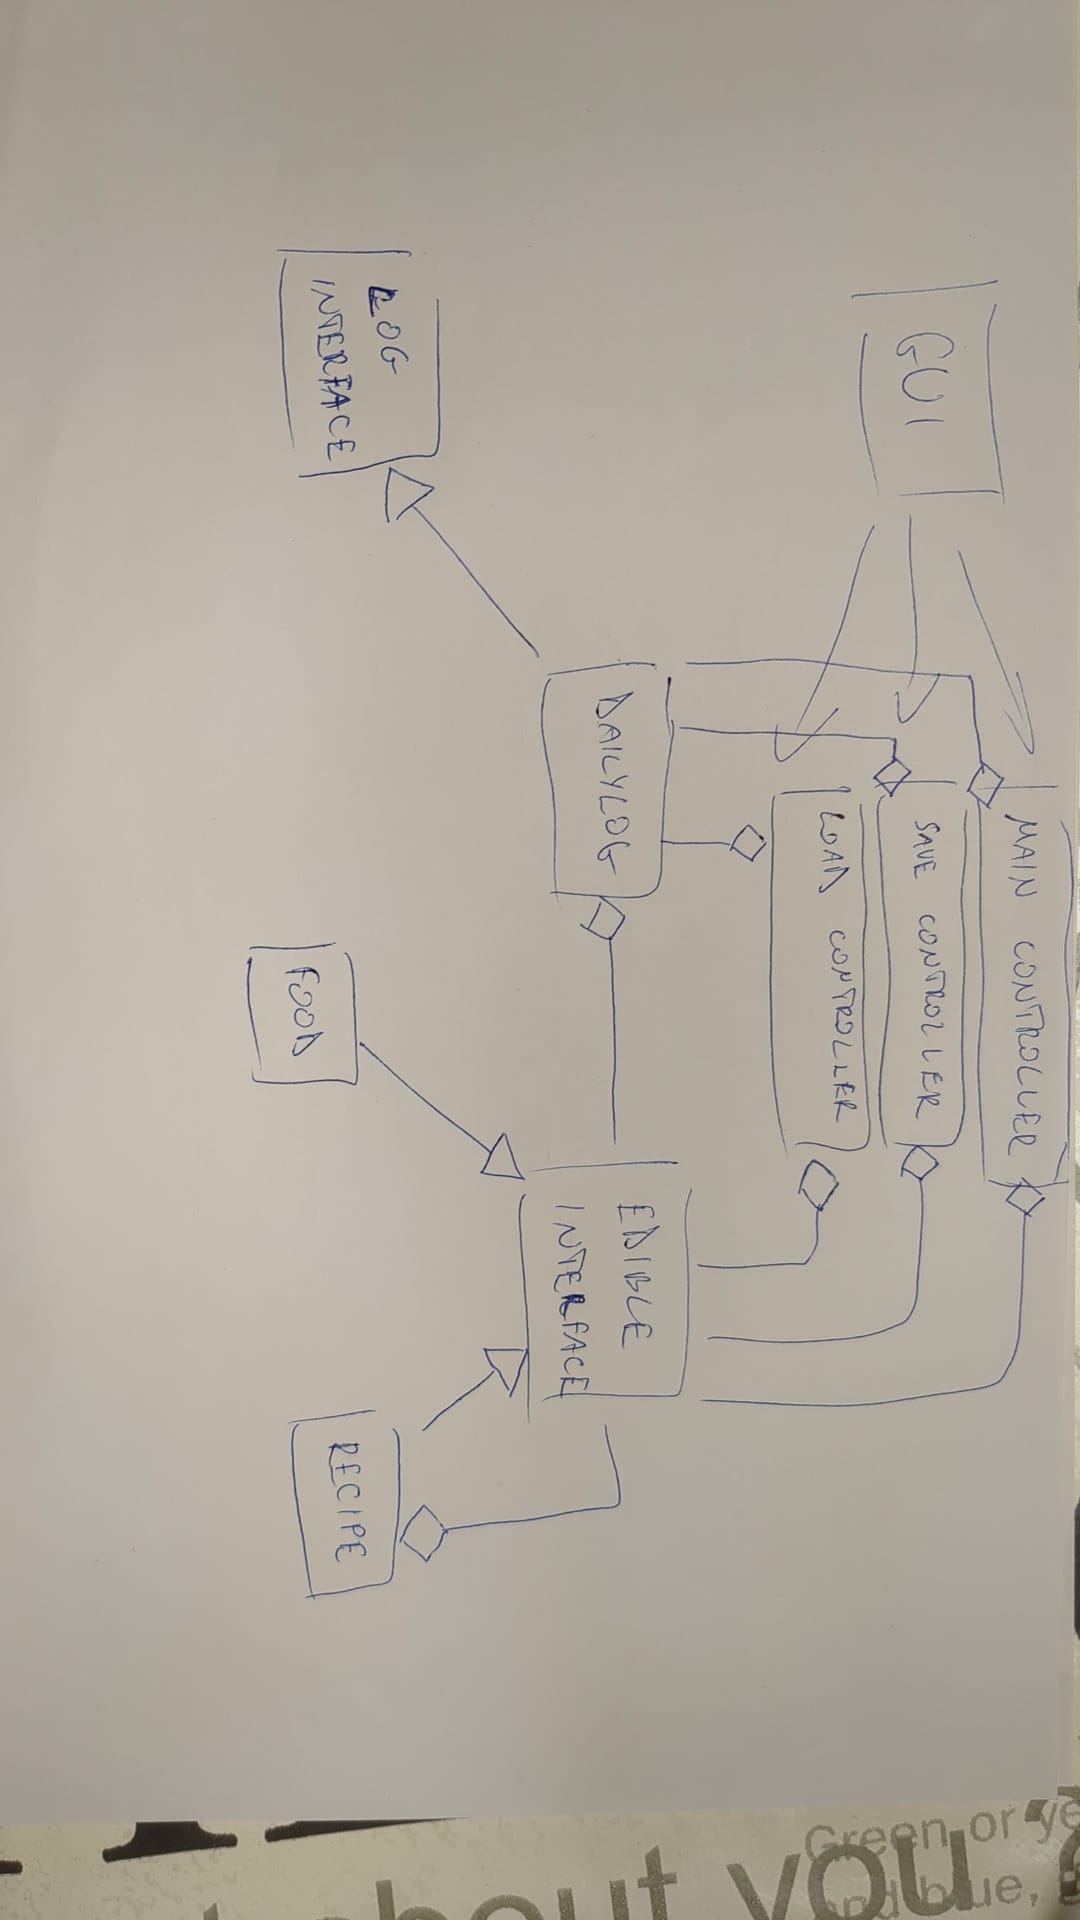 MAIN CONTROLLER
GUI
SAVE CONTROLLER
LOAD CONTROLLER
DAILYLOG
EDIBLE
INTERFACE
LOG
INTERFACE
FOOD
RECIPE
Green or ye
you